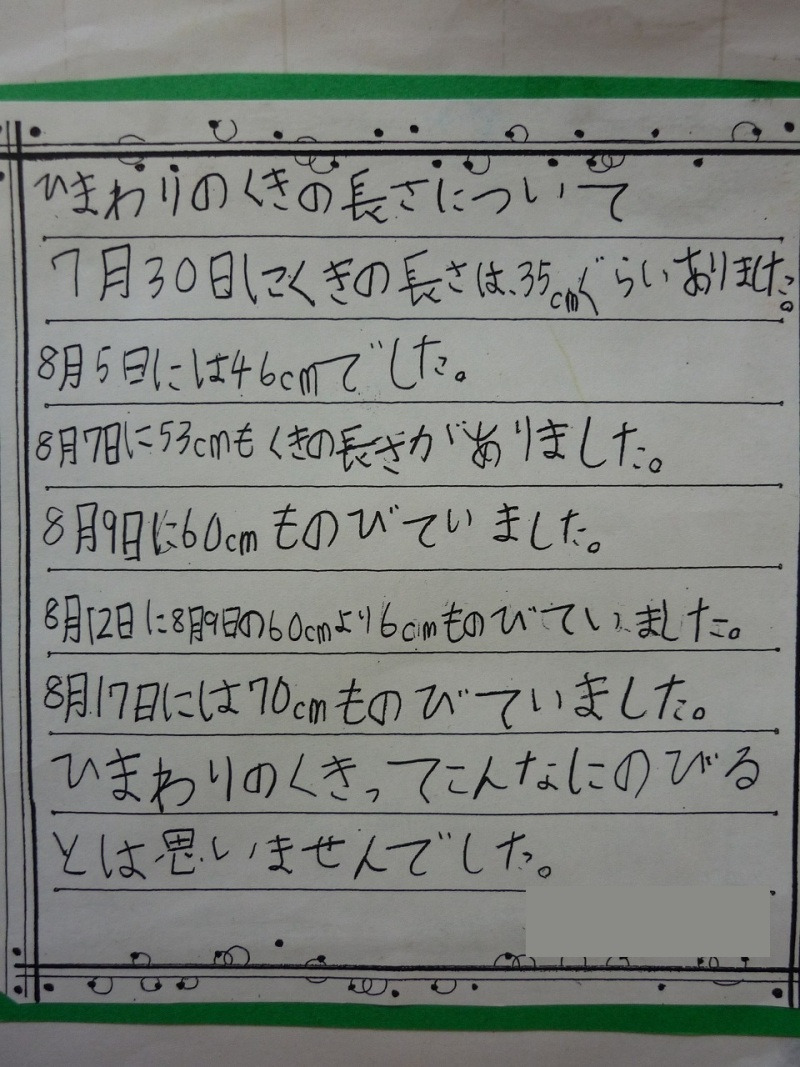 ひまわりのくきの長さについて
7月30日にくきの長さは、35cmぐらいありました。
8月5日には46cmでした。
8月7日に53cmもくきの長さがありました。
8月9日に60cmものびていました。
8月12日に8月9日の60cmより6cmものびていました。
8月17日には70cmものびていました。
ひまわりのくきってこんなにのびる
とは思いませんでした。